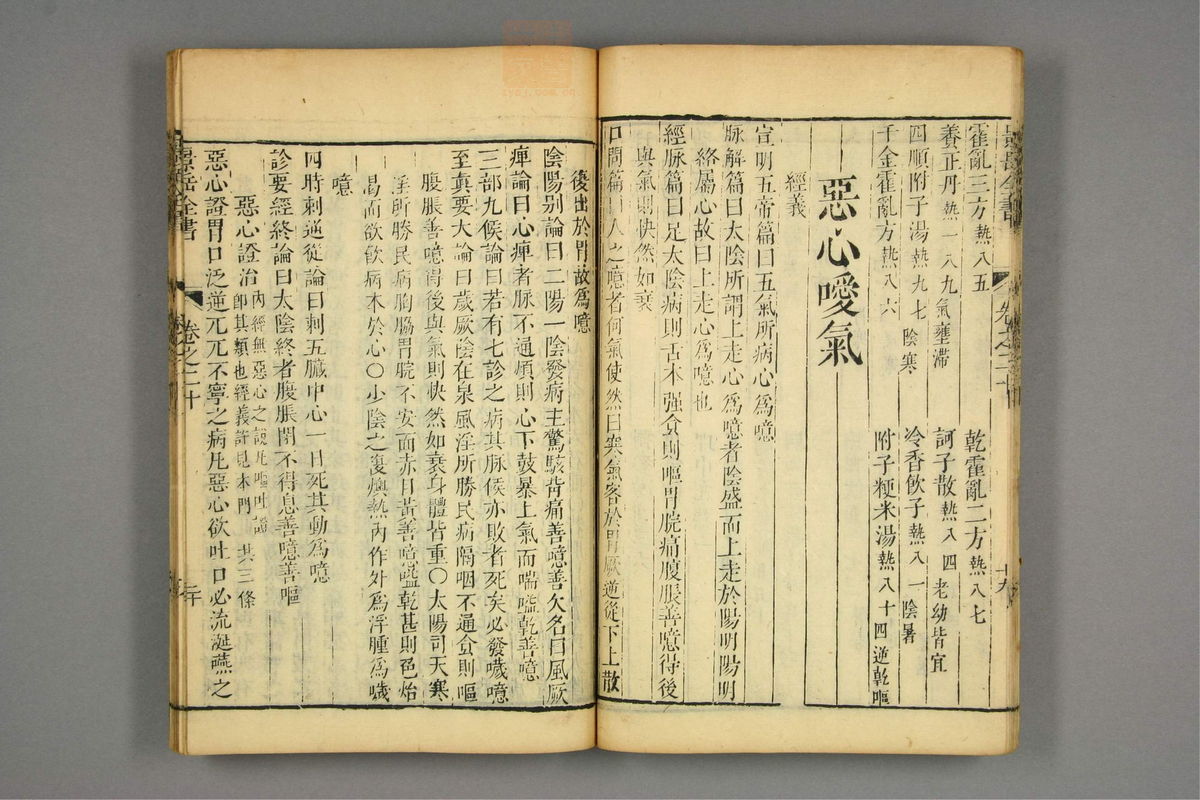 霍亂三方熱八五
乾霍亂二方熱八七
養正丹熱一八九氣壅滯
訶子散熱八四老幼皆宜
四順附子湯熱九七陰寒
冷香飲子熱八一陰暑
千金霍亂方熱八六
附子粳米湯熱八十四逆乾嘔
惡心噯氣
經義
宣明五帝篇曰五氣所病心爲噫
脉解篇曰太陰所謂上走心爲噫者陰盛而上走於陽明陽明
絡屬心故曰上走心爲噫也
經脉篇曰足太陰病則舌本强食則嘔胃脘痛腹脹善噫得後
與氣則快然如衰
口問篇曰人之噫者何氣使然曰寒氣客於胃厥逆從下上散
復出於胃故爲噫
陰陽别論曰二陽一陰發病主驚駭背痛善噫善欠名曰風厥
痺論曰心痺者脉不通煩則心下鼓暴上氣而喘嗌乾善噫
三部九候論曰若有七診之病其脉候亦敗者死矣必發噦噫
至真要大論曰歲厥陰在泉風淫所勝民病隔咽不通食則嘔
腹脹善噫得後與氣則快然如衰身體皆重〇太陽司天寒
淫所勝民病胸脇胃脘不安面赤目黃善噫嗌乾甚則色炲
渴而欲飲病本於心〇少陰之復燠熱内作外爲浮腫爲噦
噫
四時刺逆從論曰刺五臟中心一日死其動爲噫
診要經終論曰太陰終者腹脹閉不得息善噫善嘔
惡心證治内經無惡心之說凡嘔吐證
即其類也經義詳見本門共三條
惡心證胃口泛逆兀兀不寧之病凡惡心欲吐口必流涎嚥之
景岳全書
卷之二十